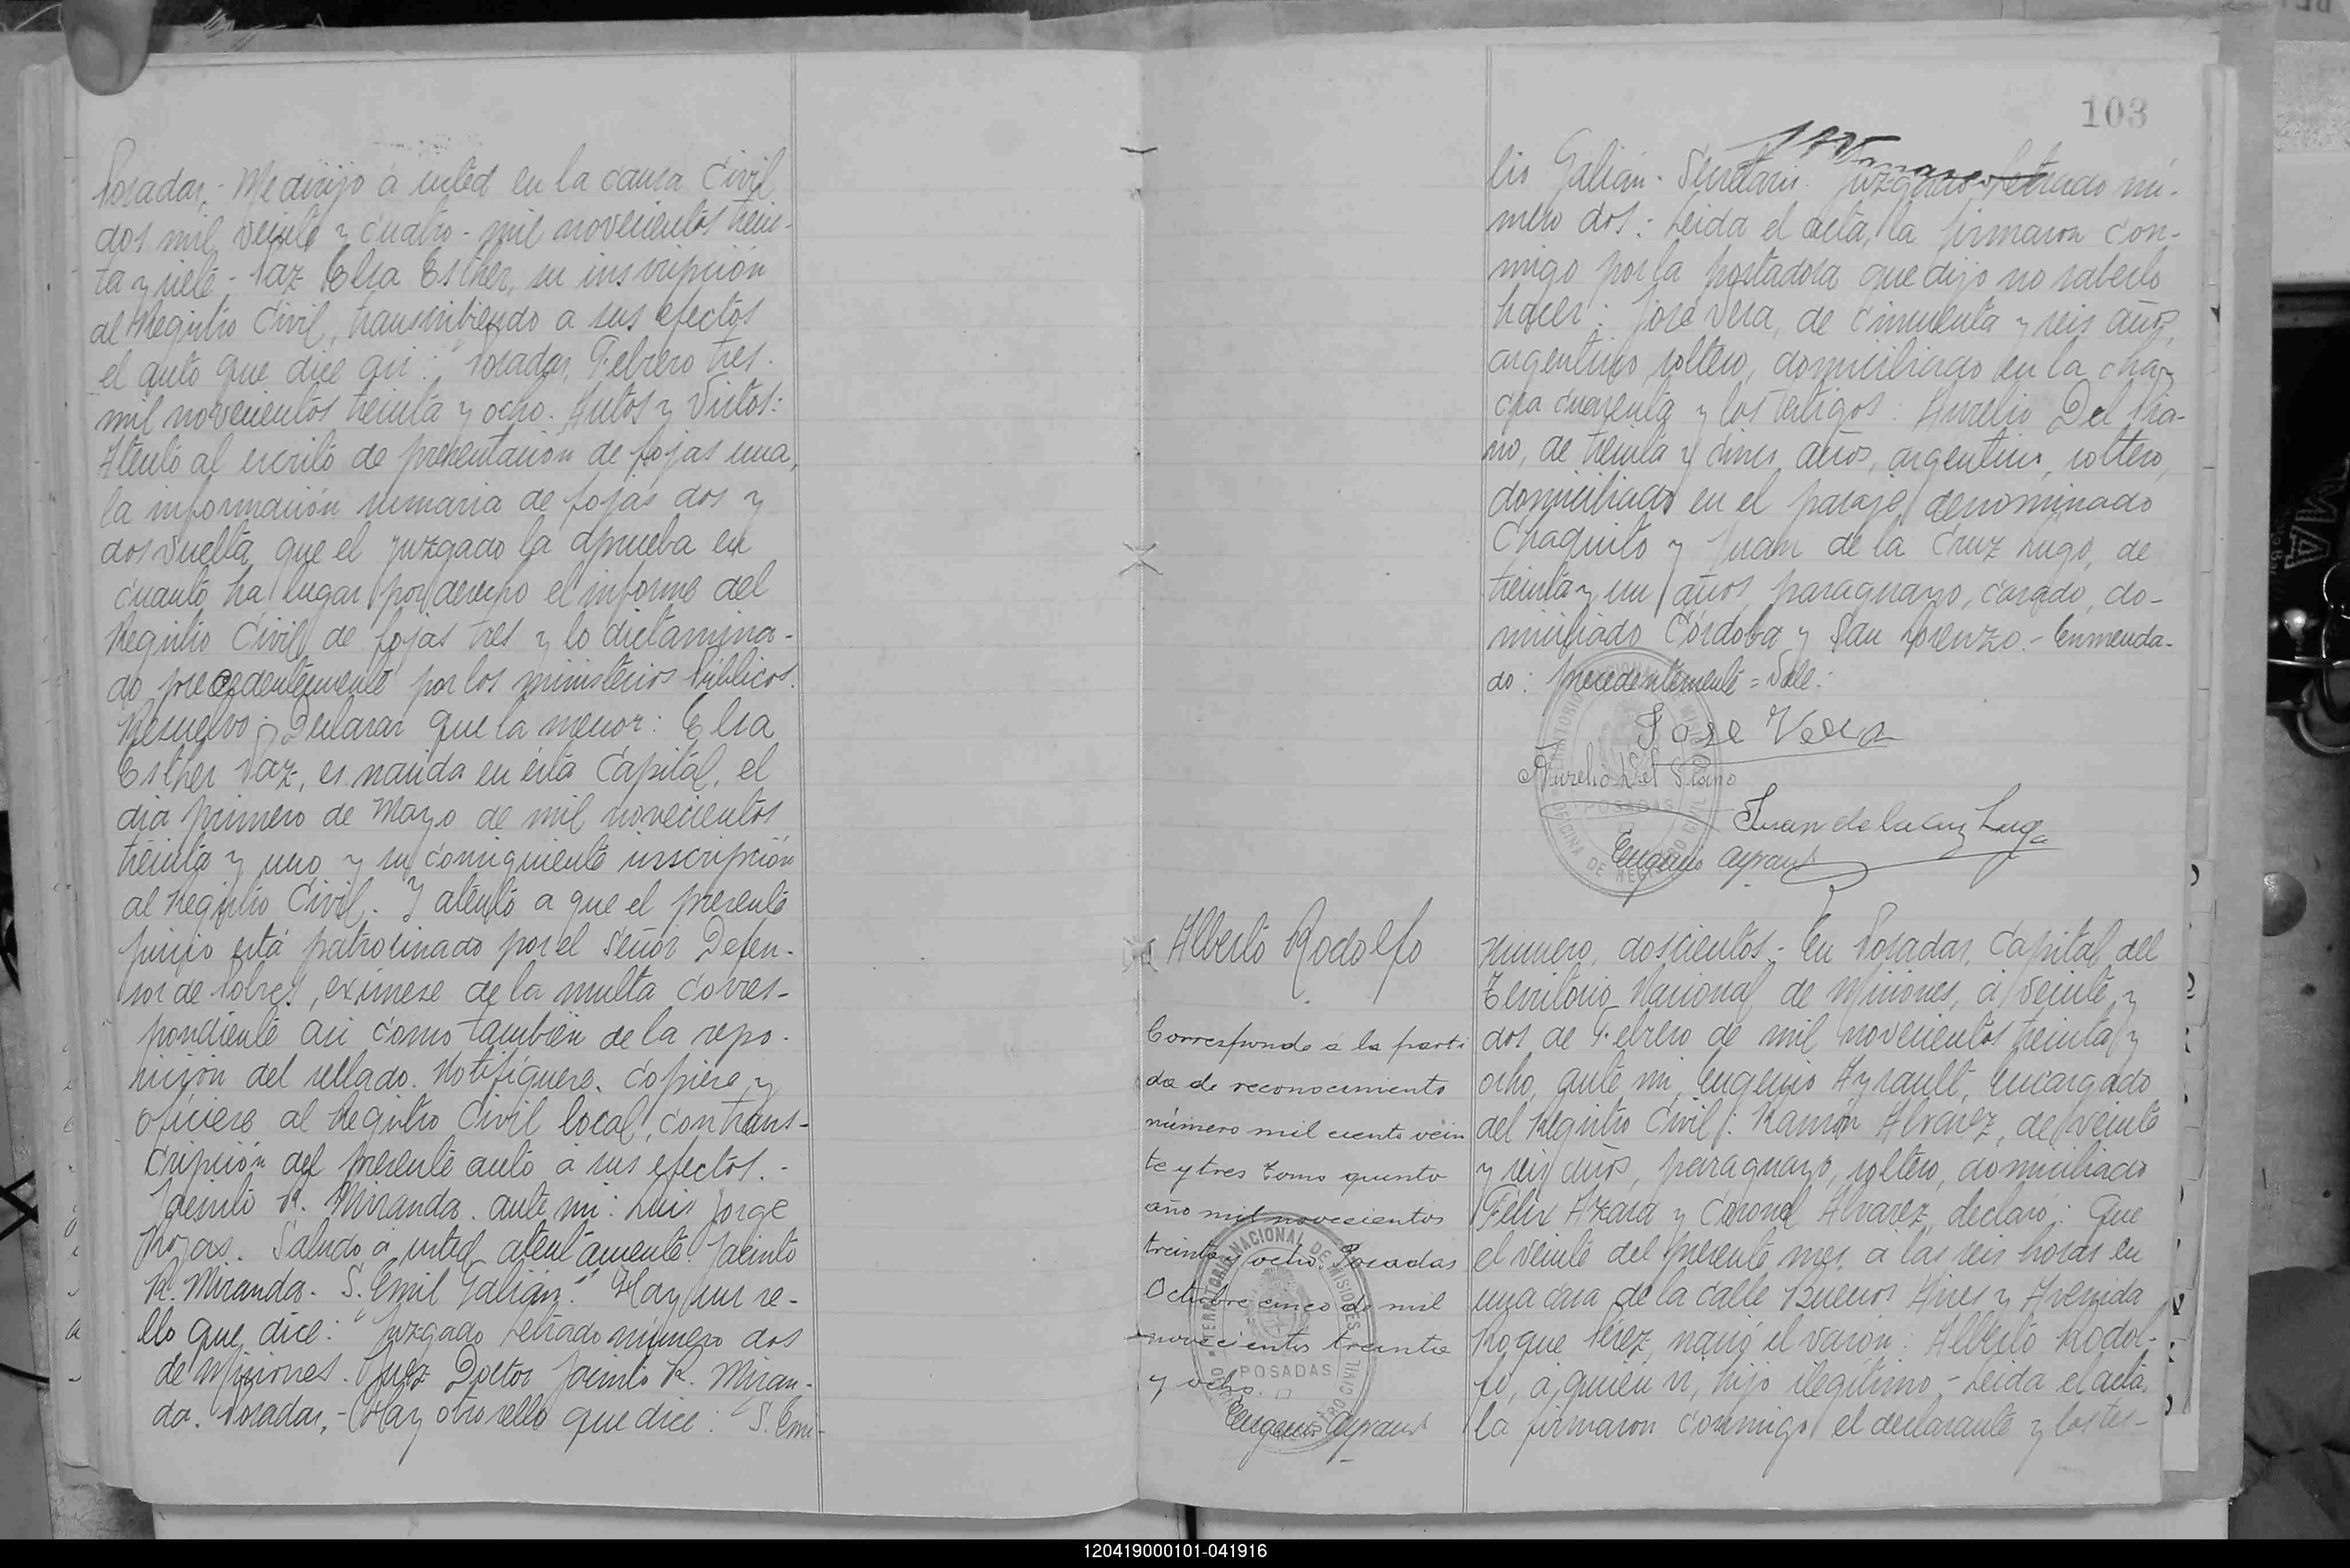 Posadas,- Me dirijo á usted en la causa Civil
dos mil veinte y cuatro - mil novecientos trein-
ta y siete - Paz Elsa Esther, su inscripción
al Registro Civil, transcribiendo a sus efectos
el auto que dice asi: "Posadas, Febrero tres.
mil novecientos treinta y ocho. Autos y Vistos:
Atento al escrito de presentación de fojas una,
la información sumaria de fojas dos y
dos vuelta que el Juzgado la aprueba en
cuanto ha lugar por derecho el informe del
Registro Civil de fojas tres y lo dictamina-
do precedentemente por los ministerios Públicos.
Resuelvo: Declarar que la menor: Elsa
Esther Paz, es nacida en ésta Capital, el
dia primero de Mayo de mil novecientos
treinta y uno y su consiguiente inscripción
al Registro Civil. Y atento a que el presente
juicio está patrocinado por el Señor Defen-
sor de Pobres, exímese de la multa corres-
pondiente asi como también de la repo-
sición del sellado. Notifíquese. Cópiese y
oficiese al Registro Civil local, con trans-
cripción del presente auto a sus efectos.-
Jacinto R. Miranda. ante mi: Luis Jorge
Rojas. Saludo á usted atentamente. Jacinto
R. Miranda. S. Emil Galián." Hay un se-
llo que dice: "Juzgado Letrado número dos
de Misiones. Juez Doctor Jacinto R. Miran-
da. Posadas,- Hay otro sello que dice: "S. Emi-
103
lio Galián - Secretario. Juzgado Letrado nú-
mero dos: Leida el acta, la firmaron con-
migo por la portadora que dijo no saberlo
hacer: José Vera, de cincuenta y seis años,
argentino, soltero, domiciliado en la cha-
cra cuarenta y los testigos: Aurelio Del Pia-
no, de treinta y cinco años, argentino, soltero,
domiciliado en el paraje denominado
Chaquito y Juan de la Cruz Lugo, de
treinta y un años, paraguayo, casado, do-
miciliado Córdoba y San Lorenzo.- Enmenda-
do: precedentemente = Vale.-
José Vera
Aurelio Del Piano
Juan de la Cruz Lugo
Eugenio Ayrault
TERRITORIO NACIONAL DE MISIONES
POSADAS
OFICINA DE REGISTRO CIVIL
Alberto Rodolfo
Corresponde á la parti
da de reconocimiento
número mil ciento vein
te y tres tomo quinto
año mil novecientos
treinta y ocho. Posadas
Octubre cinco de mil
novecientos treinta
y ocho.
Eugenio Ayrault
TERRITORIO NACIONAL DE MISIONES
POSADAS
Número, doscientos.- En Posadas, Capital del
Territorio Nacional de Misiones, á veinte y
dos de Febrero de mil novecientos treinta y
ocho, ante mi, Eugenio Ayrault, Encargado
del Registro Civil: Ramón Alvarez, de veinte
y seis años, paraguayo, soltero, domiciliado
Félix Azara y Coronel Alvarez, declaró: Que
el veinte del presente mes, á las seis horas en
una casa de la calle Buenos Aires y Avenida
Roque Pérez, nació el varón: Alberto Rodol-
fo, á quien vi, hijo ilegítimo.- Leida el acta,
la firmaron conmigo el declarante y los tes-
120419000101-041916